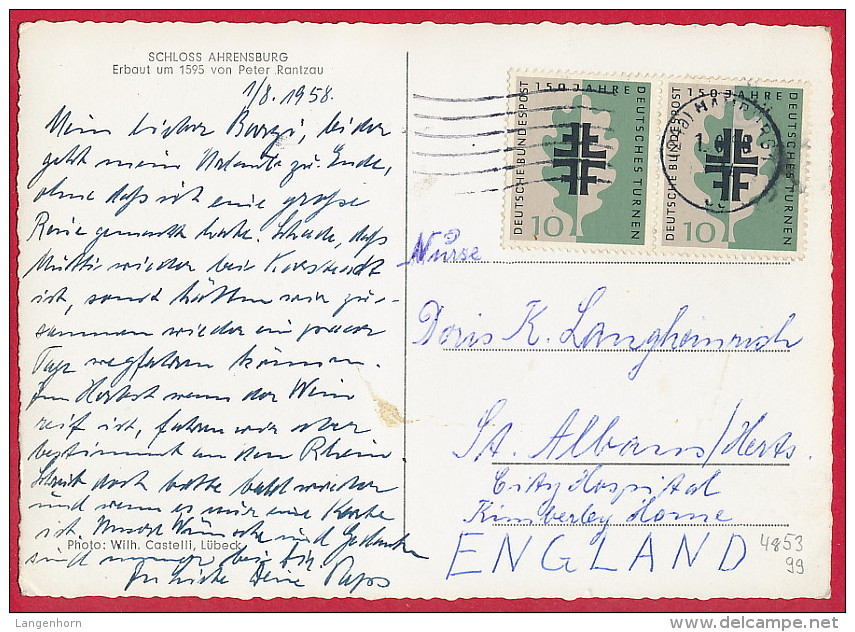 SCHLOSS AHRENSBURG
Erbaut um 1595 von Peter Rantzau
1/8. 1958.
Mein lieber, leider
geht mein Urlaub zu Ende,
ohne daß ich eine große
Reise gemacht habe. Schade, daß
Mutti wieder bei Karstadt
ist, sonst hätten wir zu-
sammen wieder ein paar
Tage wegfahren können.
Im Herbst wenn der Wein
reif ist, fahren wir aber
bestimmt an den Rhein
Schreib doch bitte bald wieder
und wenn es nur eine Karte
ist. Unsere Wünsche und Gedanken
Photo: Wilh. Castelli, Lübeck
sind immer bei Dir.
Deine Paps
150 JAHRE
DEUTSCHES TURNEN
DEUTSCHE BUNDESPOST
10
150 JAHRE
DEUTSCHES TURNEN
DEUTSCHE BUNDESPOST
10
Nurse
Doris K. Langheinrich
St. Albans/Herts.
City Hospital
Kimberley Home
ENGLAND
4853
99
Langenhorn
delcampe.net